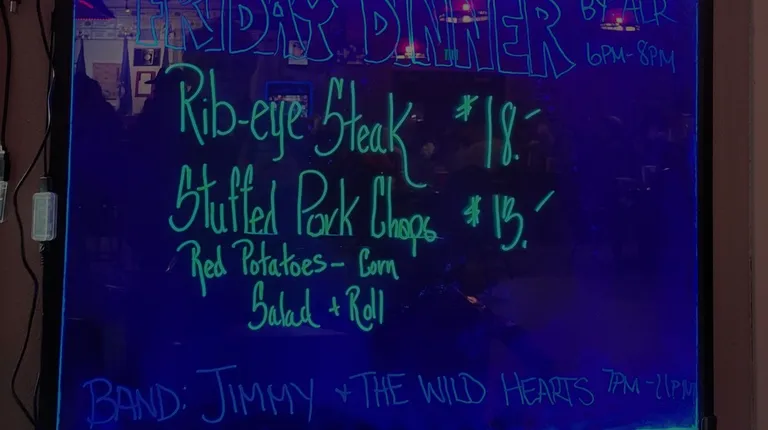 FRIDAY DINNER BY ALR
6PM-8PM
Rib-eye Steak $18.-
Stuffed Pork Chops $13.-
Red Potatoes - Corn
Salad + Roll
BAND: JIMMY + THE WILD HEARTS 7PM-11PM